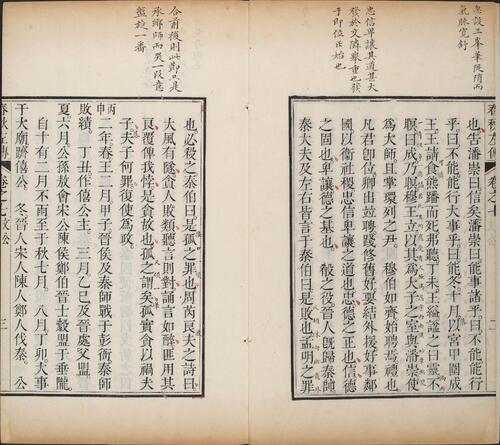 忠設王峯華陡隋而
氣脉寬舒
忠信卑讓其道甚大
發於文隣舉重也發
于即位正始也
春秋左傳
卷之七
二
也告潘崇曰信矣潘崇曰能事諸乎曰不能能行
乎曰不能能行大事乎曰能冬十月以宮甲圍成
王王請食熊蹯而死弗聽丁未王縊謚之曰靈不
瞑曰成乃瞑穆王立以其爲大子之室與潘崇使
爲大師且掌環列之尹 穆伯如齊始聘焉禮也
凡君卽位卿出竝聘踐修舊好要結外援好事鄰
國以衞社稷忠信卑讓之道也忠德之正也信德
之固也卑讓德之基也 殽之役晉人旣歸秦帥
秦大夫及左右皆言于秦伯曰是敗也孟明之罪
合前後則此節只是
承鄉師而哭一段意
盤旋一番
也必殺之秦伯曰是孤之罪也周芮良夫之詩曰
大風有隧貪人敗類聽言則對誦言如醉匪用其
良覆俾我悖是貪故也孤之謂矣孤實貪以禍夫
子夫子何罪復使爲政
丙申
二年春王二月甲子晉侯及秦師戰于彭衙秦師
敗績 丁丑作僖公主 三月乙巳及晉處父盟
夏六月公孫敖會宋公陳侯鄭伯晉士縠盟于垂隴
自十有二月不雨至于秋七月 八月丁卯大事
于大廟躋僖公 冬晉人宋人陳人鄭人伐秦 公
春秋左傳
卷之七 文公
三